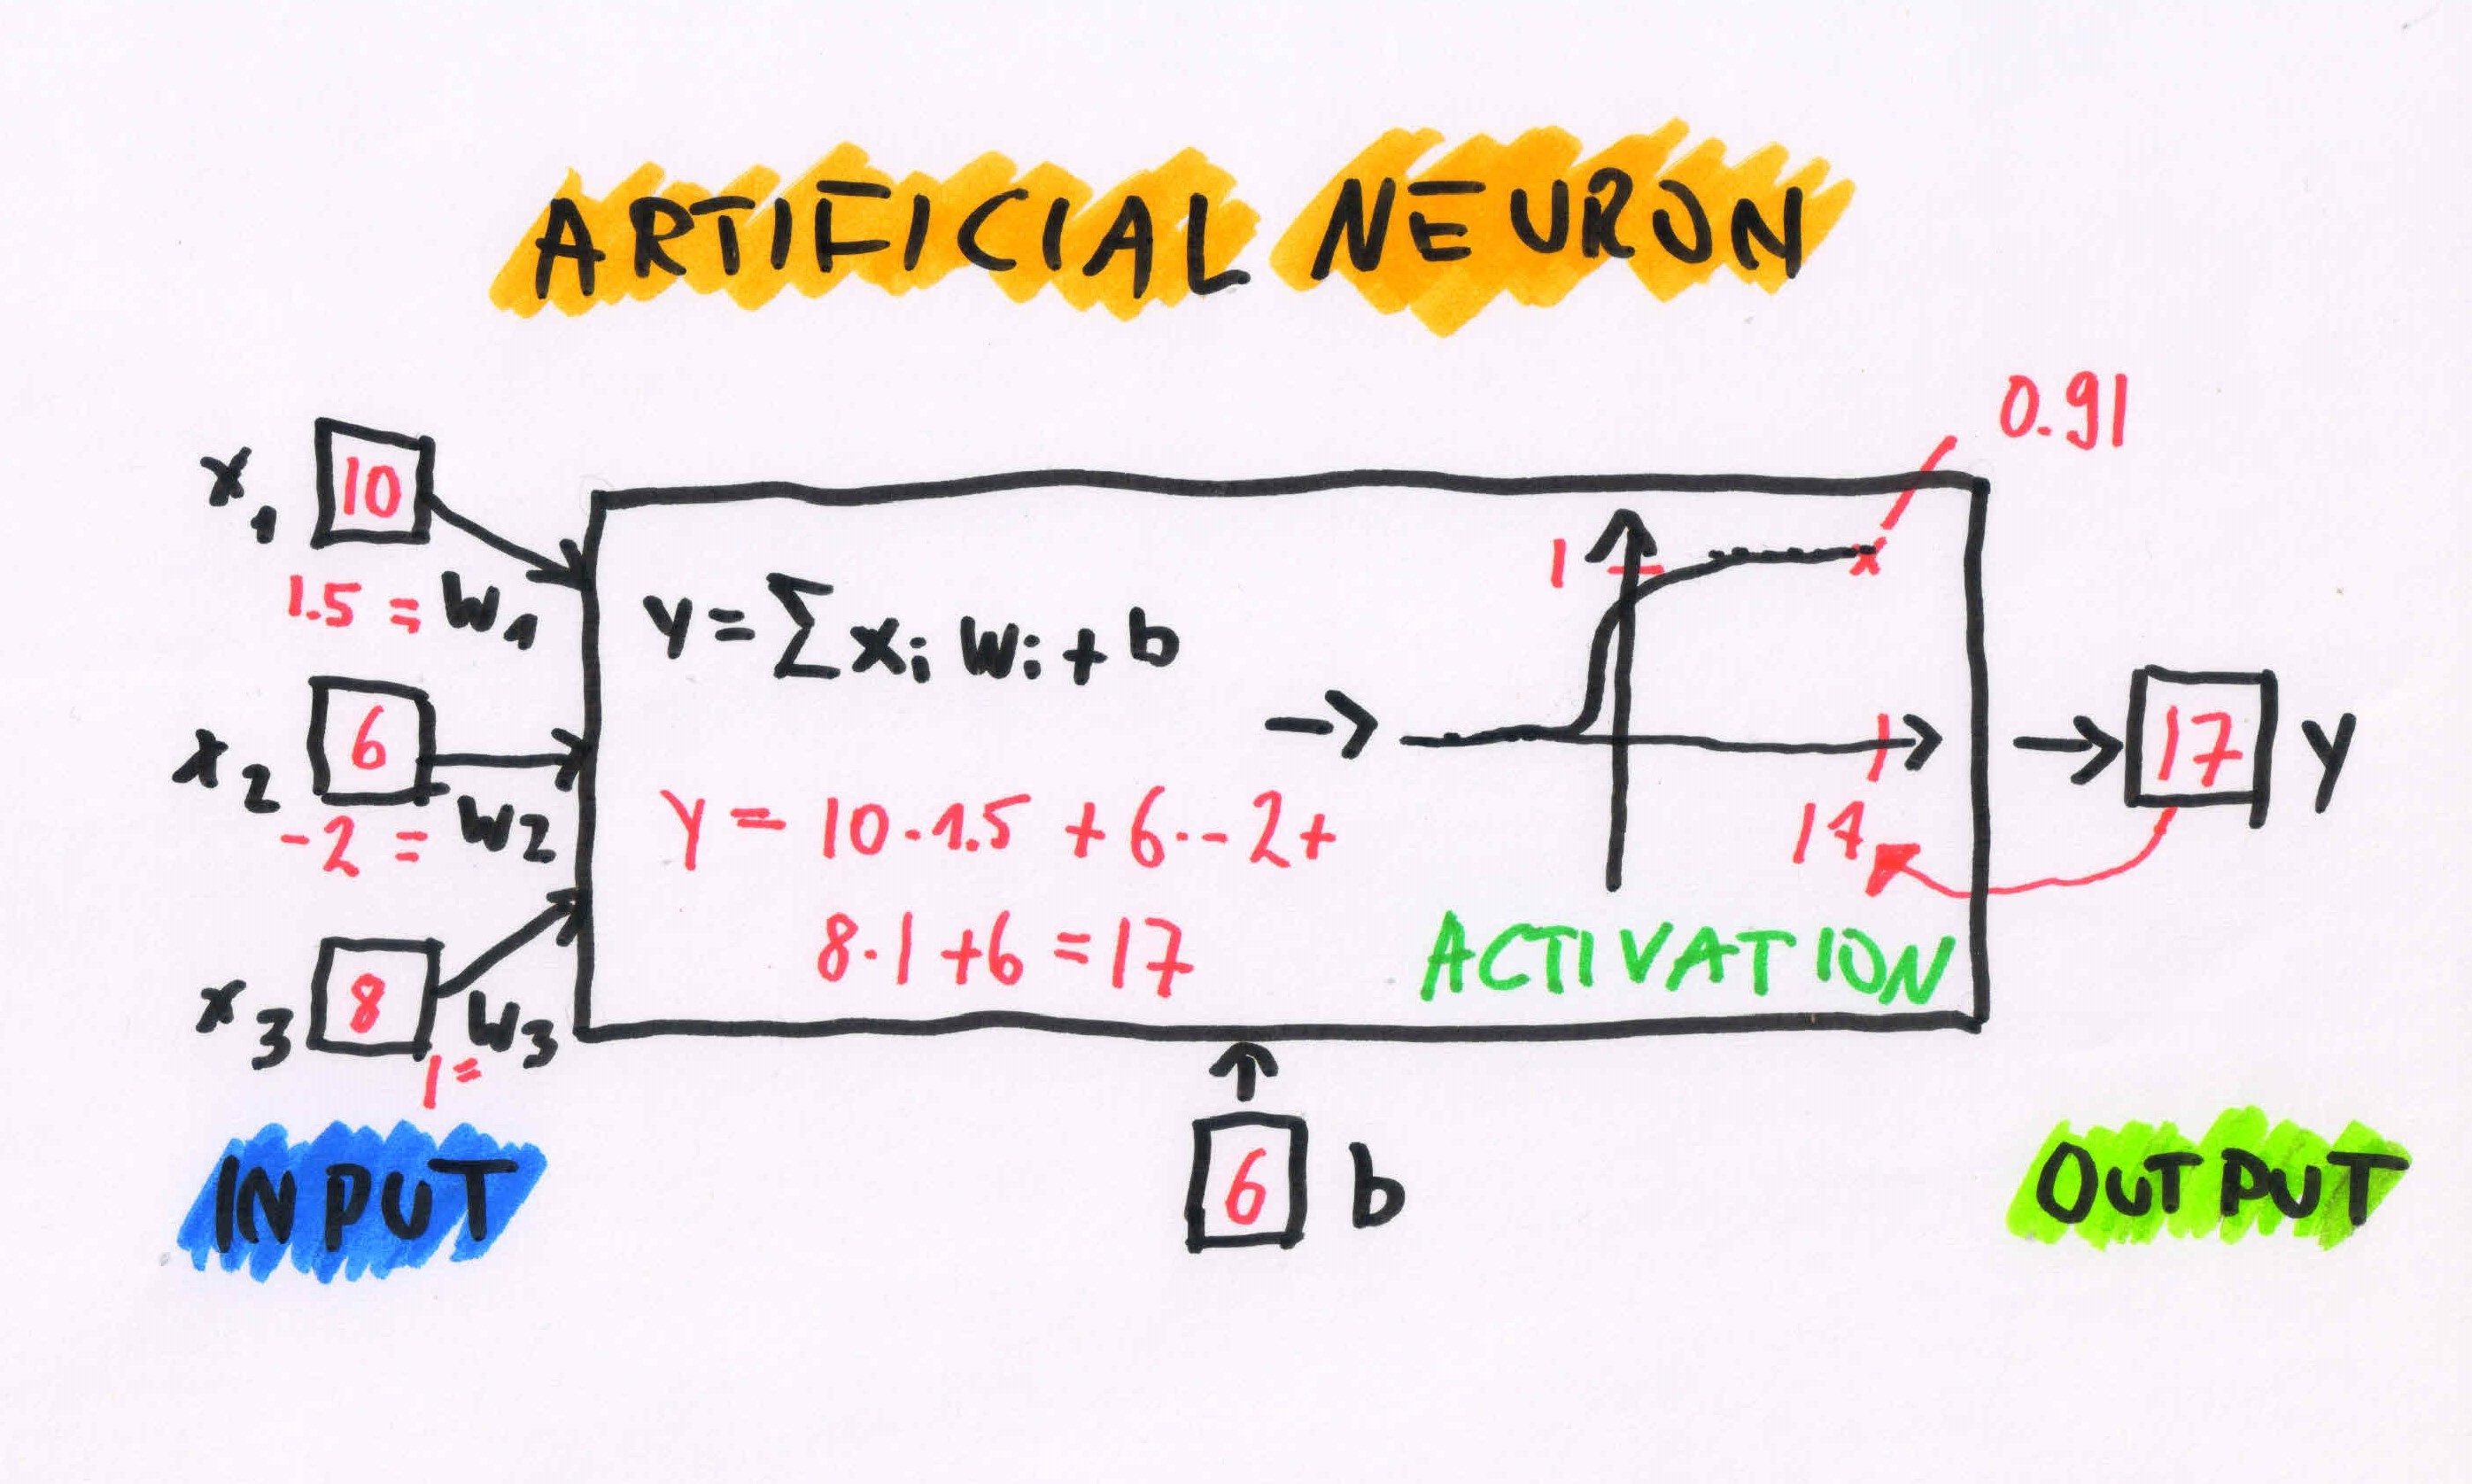 ARTIFICIAL NEURON
0.91
x1 10
1.5 = W1
x2 6
-2 = W2
x3 8
1= W3
y = ∑ xi wi + b
y = 10·1.5 + 6·-2+
8·1+6 = 17
1
17
ACTIVATION
17 y
6 b
INPUT
OUTPUT